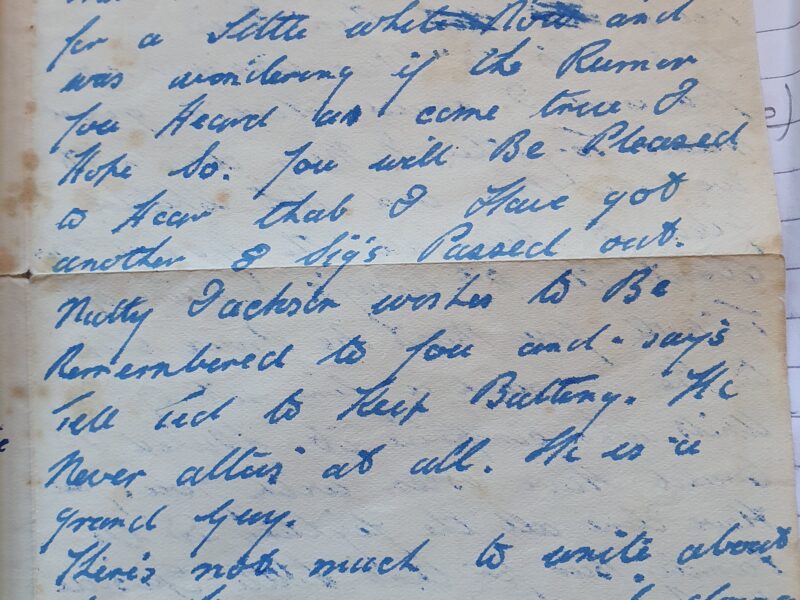 for a little while and
was wondering if the Rumor
You Heard as come true I
Hope So. You will Be Pleased
to Hear that I Have got
another 8 Sig's Passed out.
Nutty Jackson wishes to Be
Remembered to You and says
Tell Ted to Keep Batting. He
Never alters at all. He is a
grand Guy.
There's not much to write about